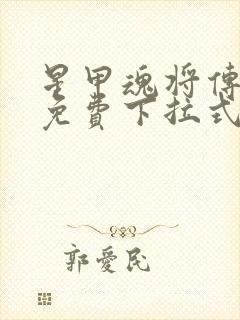 星甲魂将傳
免費下拉式
郭愛民